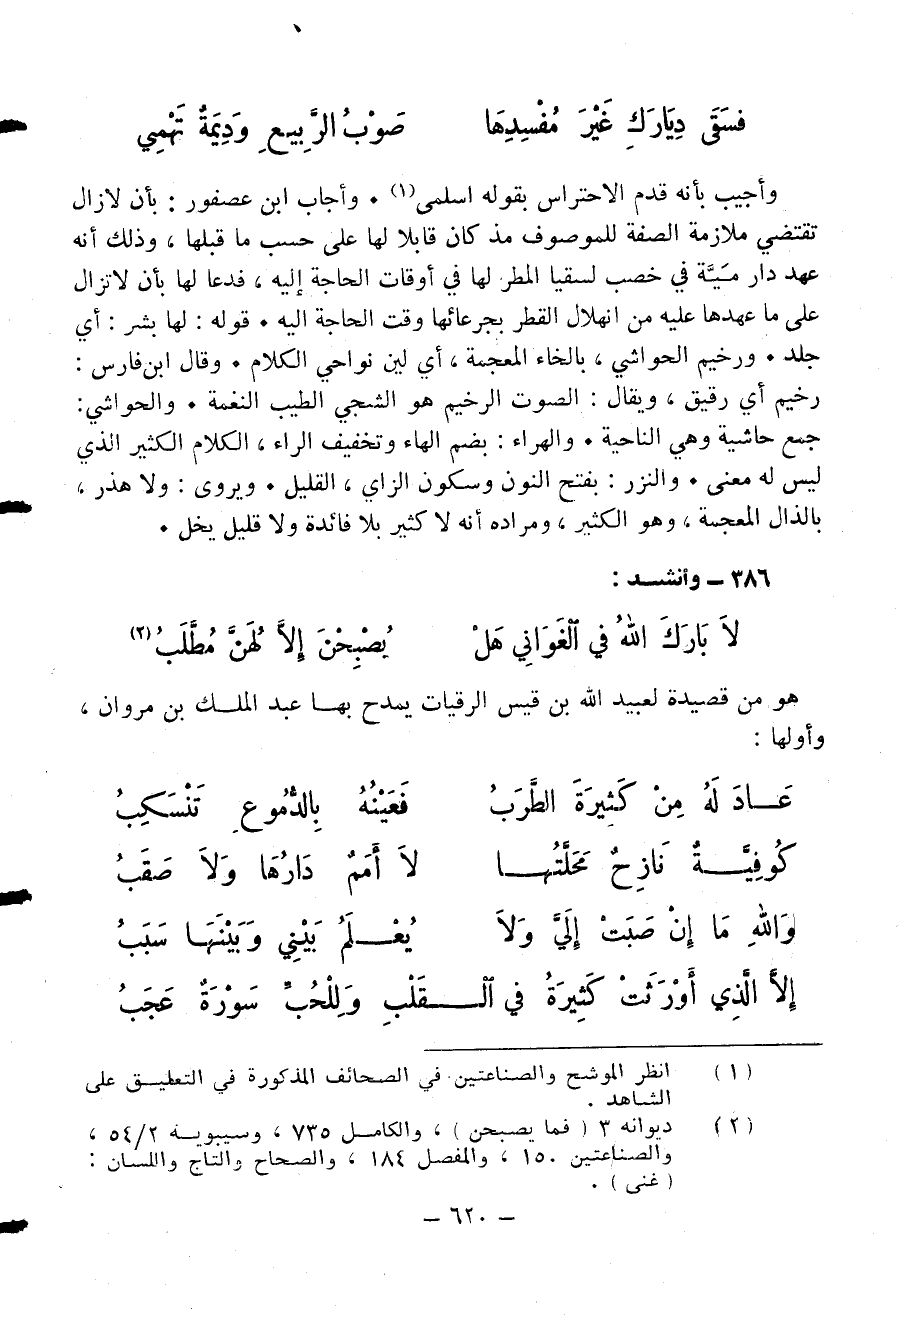 فَسَقَى دِيَارَكِ غَيْرَ مُفْسِدِهَا صَوْبُ الرَّبِيعِ وَدِيمَةٌ تَهْمِي
وأجيب بأنه قدم الاحتراس بقوله اسلمي(١) ٠ وأجاب ابن عصفور : بأن لازال
تقتضي ملازمة الصفة للموصوف مذ كان قابلا لها على حسب ما قبلها ، وذلك أنه
عهد دار ميَّة في خصب لسقيا المطر لها في أوقات الحاجة إليه ، فدعا لها بأن لاتزال
على ما عهدها عليه من انهلال القطر بجرعائها وقت الحاجة اليه ٠ قوله : لها بشر : أي
جلد ٠ ورخيم الحواشي ، بالخاء المعجمة ، أي لين نواحي الكلام ٠ وقال ابن فارس :
رخيم أي رقيق ، ويقال : الصوت الرخيم هو الشجي الطيب النغمة ٠ والحواشي:
جمع حاشية وهي الناحية ٠ والهراء : بضم الهاء وتخفيف الراء ، الكلام الكثير الذي
ليس له معنى ٠ والنزر : بفتح النون وسكون الزاي ، القليل ٠ ويروى : ولا هذر ،
بالذال المعجمة ، وهو الكثير ، ومراده أنه لا كثير بلا فائدة ولا قليل يخل ٠
٣٨٦ – وأنشـد :
لاَ بَارَكَ اللهُ فِي ٱلغَوَانِي هَلْ يُصْبِحْنَ إِلاَّ لَهُنَّ مُطَّلَبُ(٢)
هو من قصيدة لعبيد الله بن قيس الرقيات يمدح بهـا عبد الملـك بن مروان ،
وأولها :
عَـادَ لَهُ مِنْ كَثِيرَةَ الطَّرَبُ فَعَيْنُهُ بِالدُّمُوعِ تَنْسَكِبُ
كُوفِيَّـةٌ نَازِحٌ مَحَلَّتُهـا لاَ أَمَمٌ دَارُهَا وَلاَ صَقَبُ
وَاللهِ مَا إِنْ صَبَتْ إِلَيَّ وَلاَ يُعْـلَمُ بَيْنِي وَبَيْنَهَا سَبَبُ
إِلاَّ الَّذِي أَوْرَثَتْ كَثِيرَةُ فِي ٱلْـقَلْبِ وَلِلْحُبِّ سَوْرَةٌ عَجَبُ
(١) انظر الموشح والصناعتين في الصحائف المذكورة في التعليـق على
الشاهد .
(٢) ديوانه ٣ ( فما يصبحن ) ، والكامـل ٧٣٥ ، وسيبويـه ٥٤/٢ ،
والصناعتين ١٥٠ ، والمفصل ١٨٤ ، والصحاح والتاج واللسان :
( غنى ) .
– ٦٢٠ –